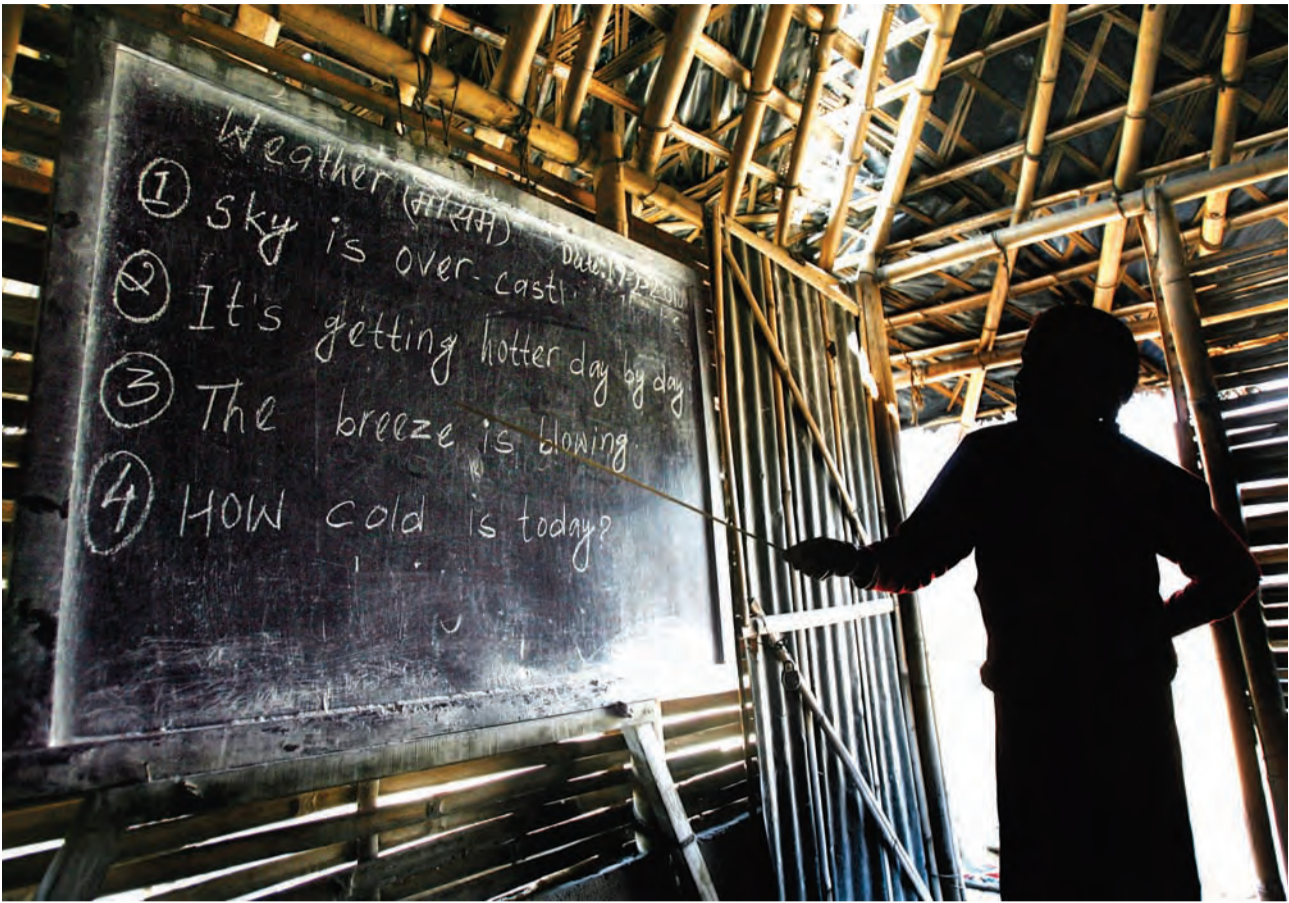 Weather (मौसम)
Date:
① Sky is over-cast.
② It's getting hotter day by day
③ The breeze is blowing.
④ HOW cold is today?